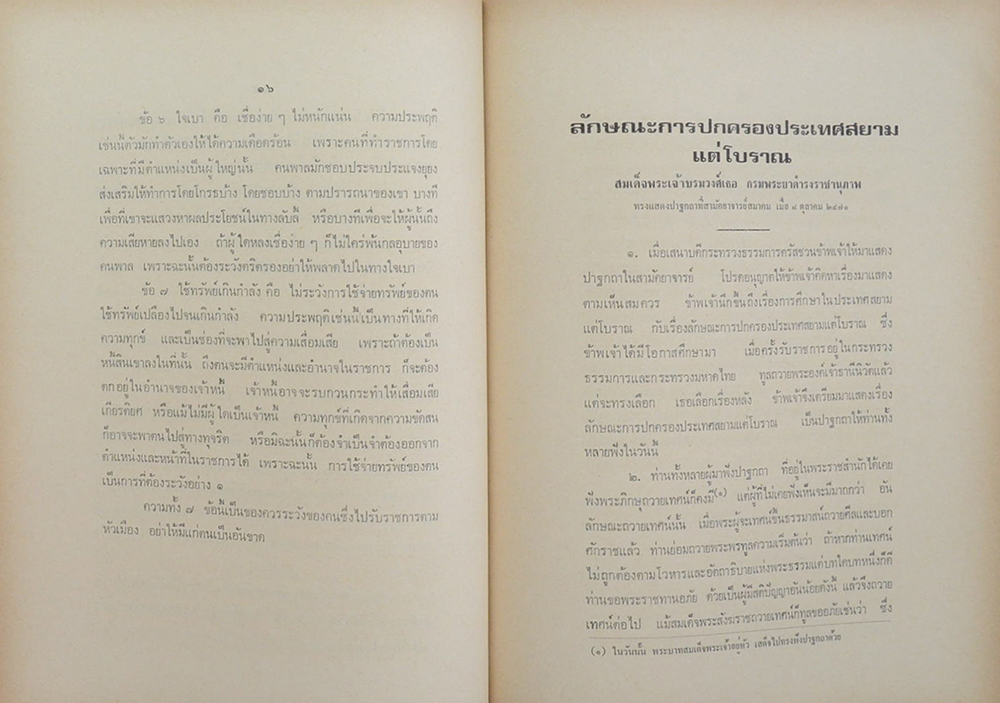 ๑๖
ข้อ ๖ ใจเบา คือ เชื่อง่าย ๆ ไม่หนักแน่น ความประพฤติ
เช่นนี้ตัวมักทำตัวเองให้ได้ความเดือดร้อน เพราะคนที่ทำราชการโดย
เฉพาะที่มีตำแหน่งเป็นผู้ใหญ่นั้น คนพาลมักชอบประจบประแจงยุยง
ส่งเสริมให้ทำการโดยโกรธบ้าง โดยชอบบ้าง ตามปรารถนาของเขา บางที
เพื่อที่เขาจะแสวงหาผลประโยชน์ในทางลับลี้ หรือบางทีเพื่อจะให้ผู้นั้นถึง
ความเสียหายลงไปเอง ถ้าผู้ใดหลงเชื่อง่าย ๆ ก็ไม่ใคร่พ้นกลอุบายของ
คนพาล เพราะฉะนั้นต้องระวังตริตรองอย่าให้พลาดไปในทางใจเบา
ข้อ ๗ ใช้ทรัพย์เกินกำลัง คือ ไม่ระวังการใช้จ่ายทรัพย์ของตน
ใช้ทรัพย์เปลืองไปจนเกินกำลัง ความประพฤติเช่นนี้เป็นทางที่ให้เกิด
ความทุกข์ และเป็นช่องที่จะพาไปสู่ความเสื่อมเสีย เพราะถ้าต้องเป็น
หนี้สินเขาลงในที่นั้น ถึงตนจะมีตำแหน่งและอำนาจในราชการ ก็จะต้อง
ตกอยู่ในอำนาจของเจ้าหนี้ เจ้าหนี้อาจจะรบกวนกระทำให้เสื่อมเสีย
เกียรติยศ หรือแม้ไม่มีผู้ใดเป็นเจ้าหนี้ ความทุกข์ที่เกิดจากความขัดสน
ก็อาจจะพาตนไปสู่ทางทุจริต หรือมิฉะนั้นก็ต้องจำเป็นจำต้องออกจาก
ตำแหน่งและหน้าที่ในราชการได้ เพราะฉะนั้น การใช้จ่ายทรัพย์ของตน
เป็นการที่ต้องระวังอย่าง ๑
ความทั้ง ๗ ข้อนี้เป็นของควรระวังของคนซึ่งไปรับราชการตาม
หัวเมือง อย่าให้มีแก่ตนเป็นอันขาด
ลักษณะการปกครองประเทศสยาม
แต่โบราณ
สมเด็จพระเจ้าบรมวงศ์เธอ กรมพระยาดำรงราชานุภาพ
ทรงแสดงปาฐกถาที่สามัคยาจารย์สมาคม เมื่อ ๘ ตุลาคม ๒๔๗๐
๑. เมื่อเสนาบดีกระทรวงธรรมการตรัสชวนข้าพเจ้าให้มาแสดง
ปาฐกถาในสามัคยาจารย์ โปรดอนุญาตให้ข้าพเจ้าคิดหาเรื่องมาแสดง
ตามเห็นสมควร ข้าพเจ้านึกขึ้นถึงเรื่องการศึกษาในประเทศสยาม
แต่โบราณ กับเรื่องลักษณะการปกครองประเทศสยามแต่โบราณ ซึ่ง
ข้าพเจ้าได้มีโอกาสศึกษามา เมื่อครั้งรับราชการอยู่ในกระทรวง
ธรรมการและกระทรวงมหาดไทย ทูลถวายพระองค์เจ้าธานีนิวัตแล้ว
แต่จะทรงเลือก เธอเลือกเรื่องหลัง ข้าพเจ้าจึงเตรียมมาแสดงเรื่อง
ลักษณะการปกครองประเทศสยามแต่โบราณ เป็นปาฐกถาให้ท่านทั้ง
หลายฟังในวันนี้
๒. ท่านทั้งหลายผู้มาฟังปาฐกถา ที่อยู่ในพระราชสำนักได้เคย
ฟังพระภิกษุถวายเทศน์ก็คงมี(๑) แต่ผู้ที่ไม่เคยฟังเห็นจะมีมากกว่า อัน
ลักษณะถวายเทศน์นั้น เมื่อพระผู้จะเทศน์ขึ้นธรรมาสน์ถวายศีลและบอก
ศักราชแล้ว ท่านย่อมถวายพระพรทูลความเริ่มต้นว่า ถ้าหากท่านเทศน์
ไม่ถูกต้องตามโวหารและอัตถาธิบายแห่งพระธรรมแต่บทใดบทหนึ่งก็ดี
ท่านขอพระราชทานอภัย ด้วยเป็นผู้มีสติปัญญาอันน้อยดังนี้ แล้วจึงถวาย
เทศน์ต่อไป แม้สมเด็จพระสังฆราชถวายเทศน์ก็ทูลขออภัยเช่นว่า ซึ่ง
(๑) ในวันนั้น พระบาทสมเด็จพระเจ้าอยู่หัว เสด็จไปทรงฟังปาฐกถาด้วย